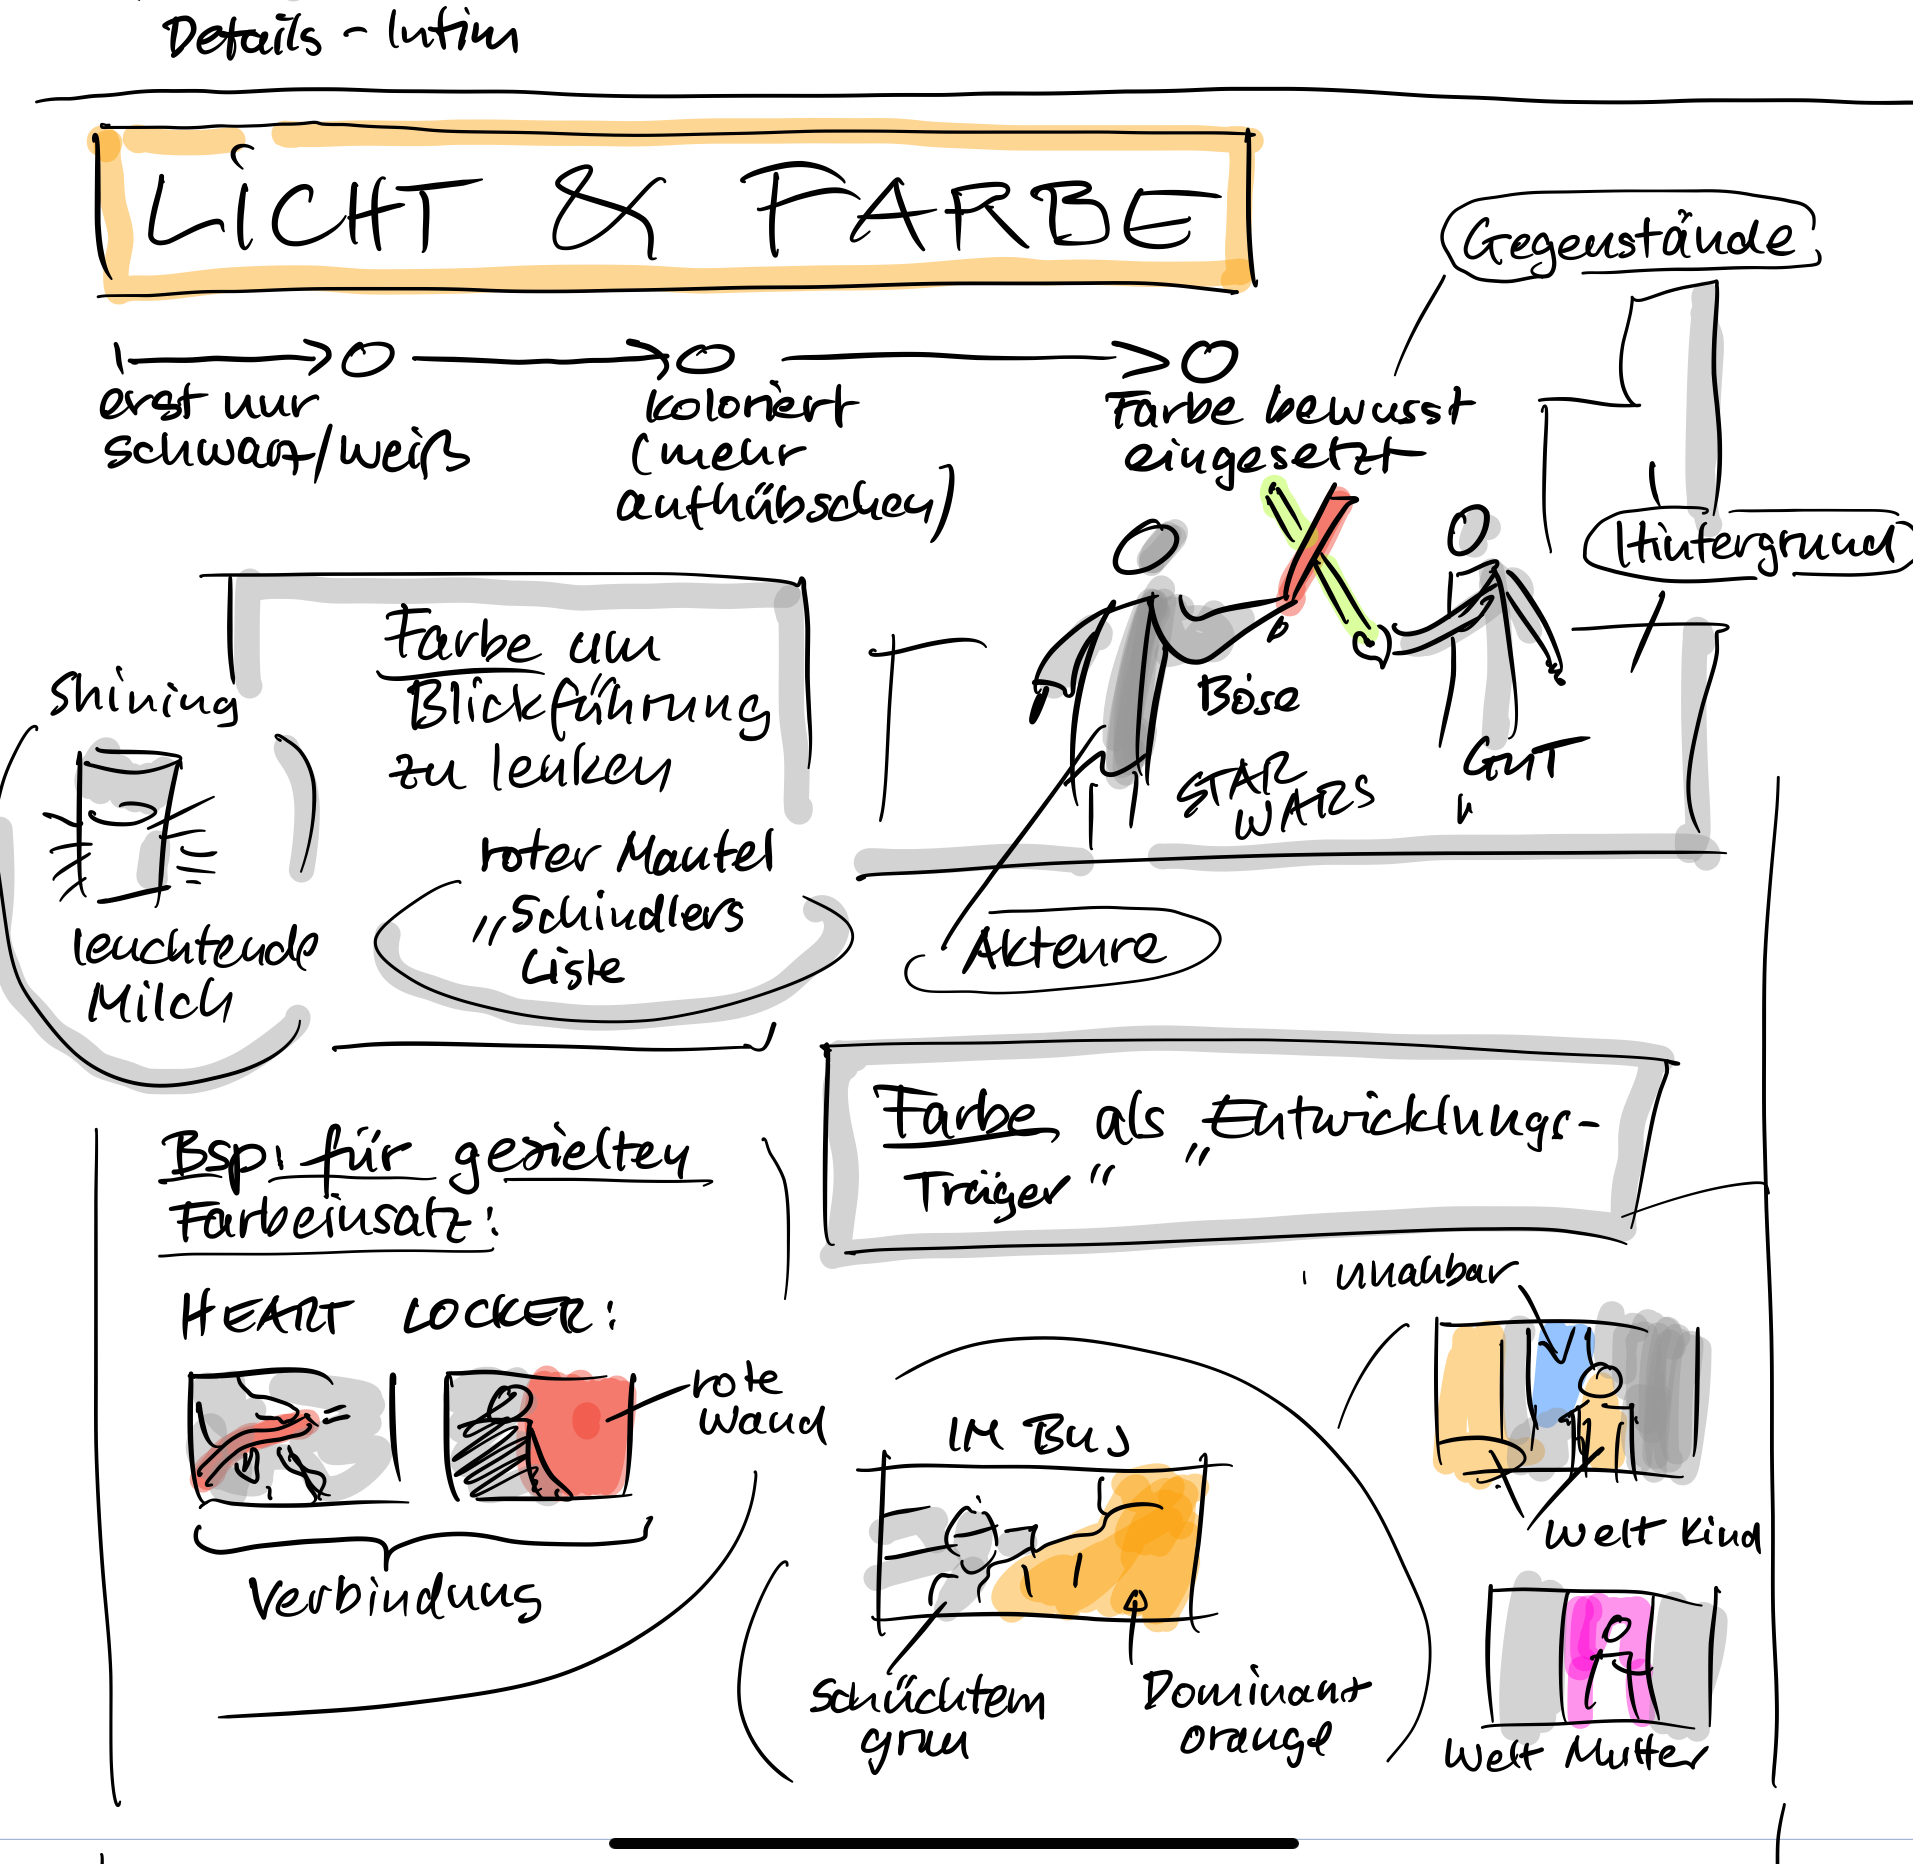 Details - Intim
LICHT & FARBE
Gegenstände
erst nur
schwarz/weiß
koloriert
(mehr
aufhübschen)
Farbe bewusst
eingesetzt
Hintergrund
Böse
GUT
STAR
WARS
Akteure
Farbe um
Blickführung
zu lenken
Shining
leuchtende
Milch
roter Mantel
„Schindlers
Liste
Bsp: für gezielten
Farbeinsatz:
HEART LOCKER:
rote
Wand
Verbindung
Farbe als „Entwicklungs-
Träger“
IM BUS
Schüchtern
grau
Dominant
orange
unahbar
Welt Kind
Welt Mutter